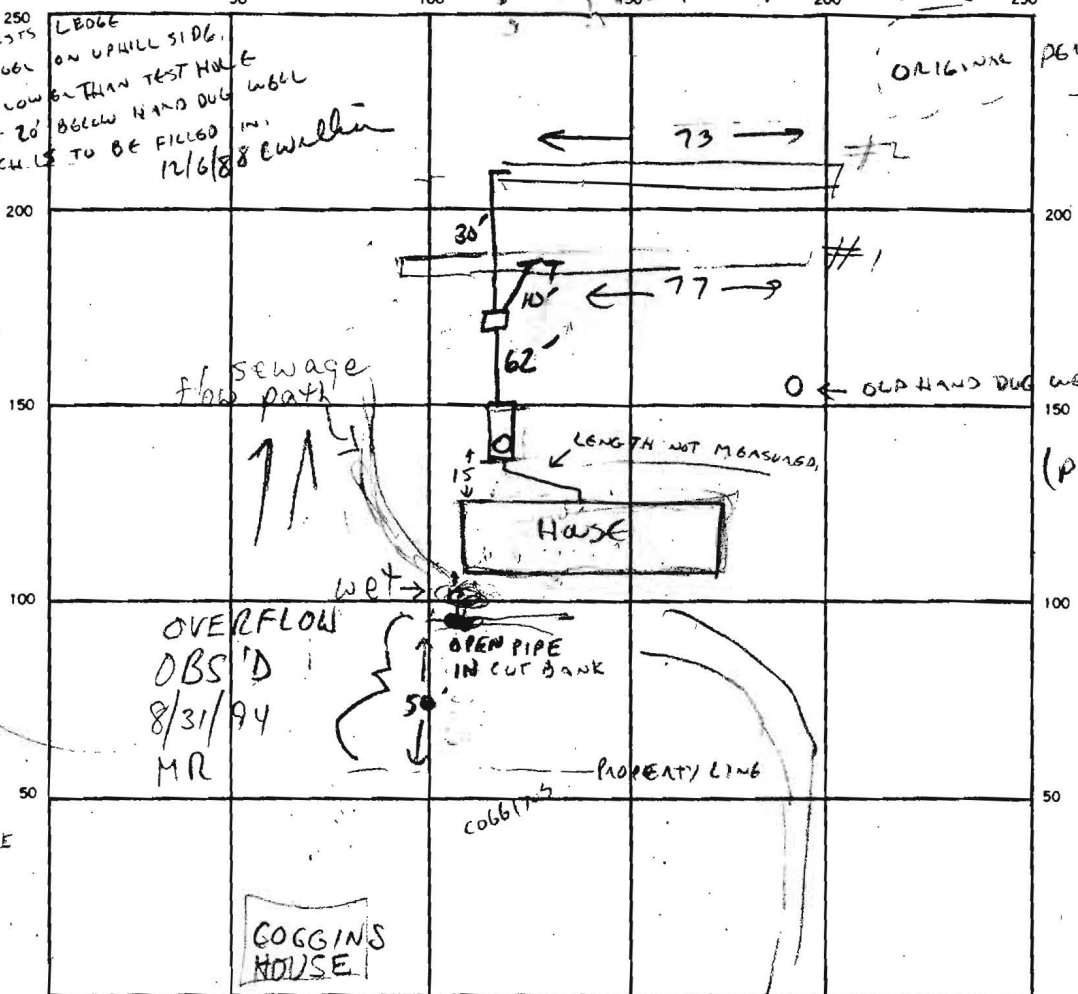 250
200
250
LEDGE
ON UPHILL SIDE,
LOWER THAN TEST HOLE
20' BELOW HAND DUG WELL
TO BE FILLED IN.
12/6/88
ORIGINAL
← 73 →
#2
200
200
30'
#1
10'
← 77 →
62'
sewage
flow path
O ← OLD HAND DUG
150
150
LENGTH NOT MEASURED,
15
HOUSE
wet →
100
100
OVERFLOW
OBS'D
8/31/94
MR
OPEN PIPE
IN CUT BANK
PROPERTY LINE
50
50
COGGINS
COGGINS
HOUSE